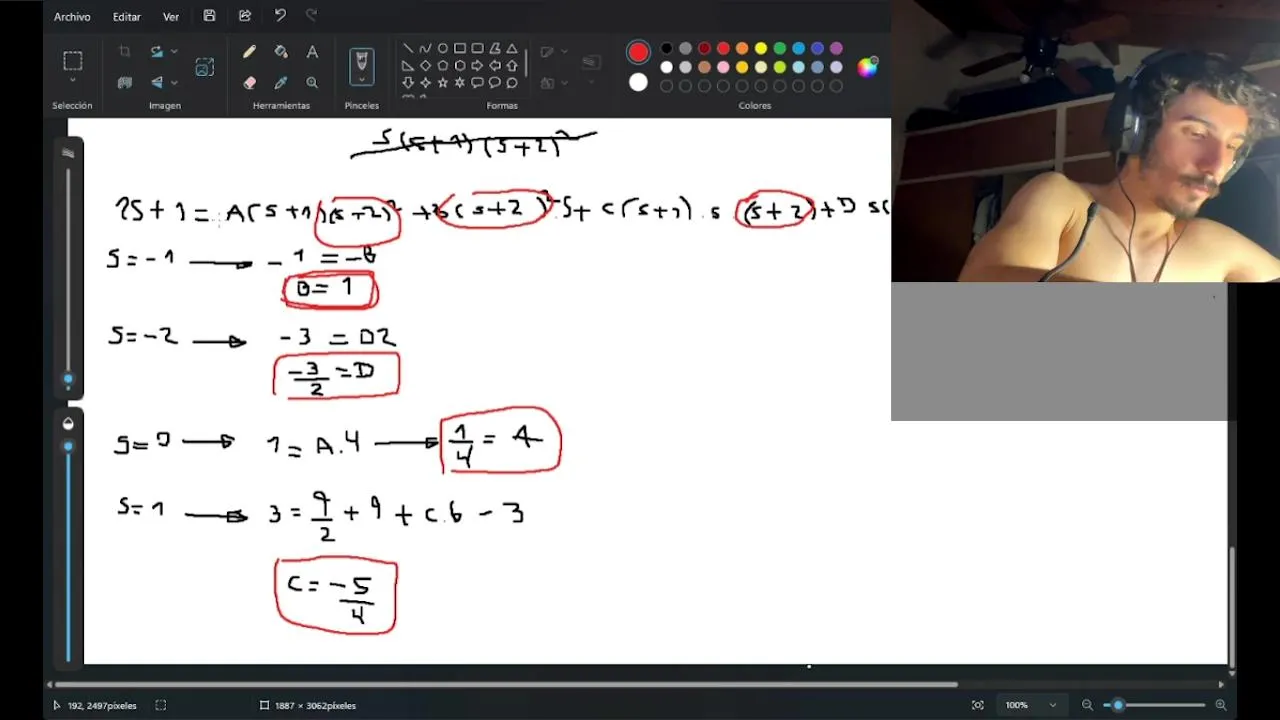 Archivo Editar Ver
Selección Imagen Herramientas Pinceles Formas Colores
S(S+1)(S+2)²
2S+1 = A(S+1)(S+2)² + B(S+2)²·S + C(S+1)·S·(S+2) + D S(
S=-1 → -1 = -B
B = 1
S=-2 → -3 = D2
-3/2 = D
S=0 → 1 = A.4 → 1/4 = A
S=1 → 3 = 9/2 + 9 + C.6 - 3
C = -5/4
192, 2497píxeles 1887 × 3062píxeles 100%